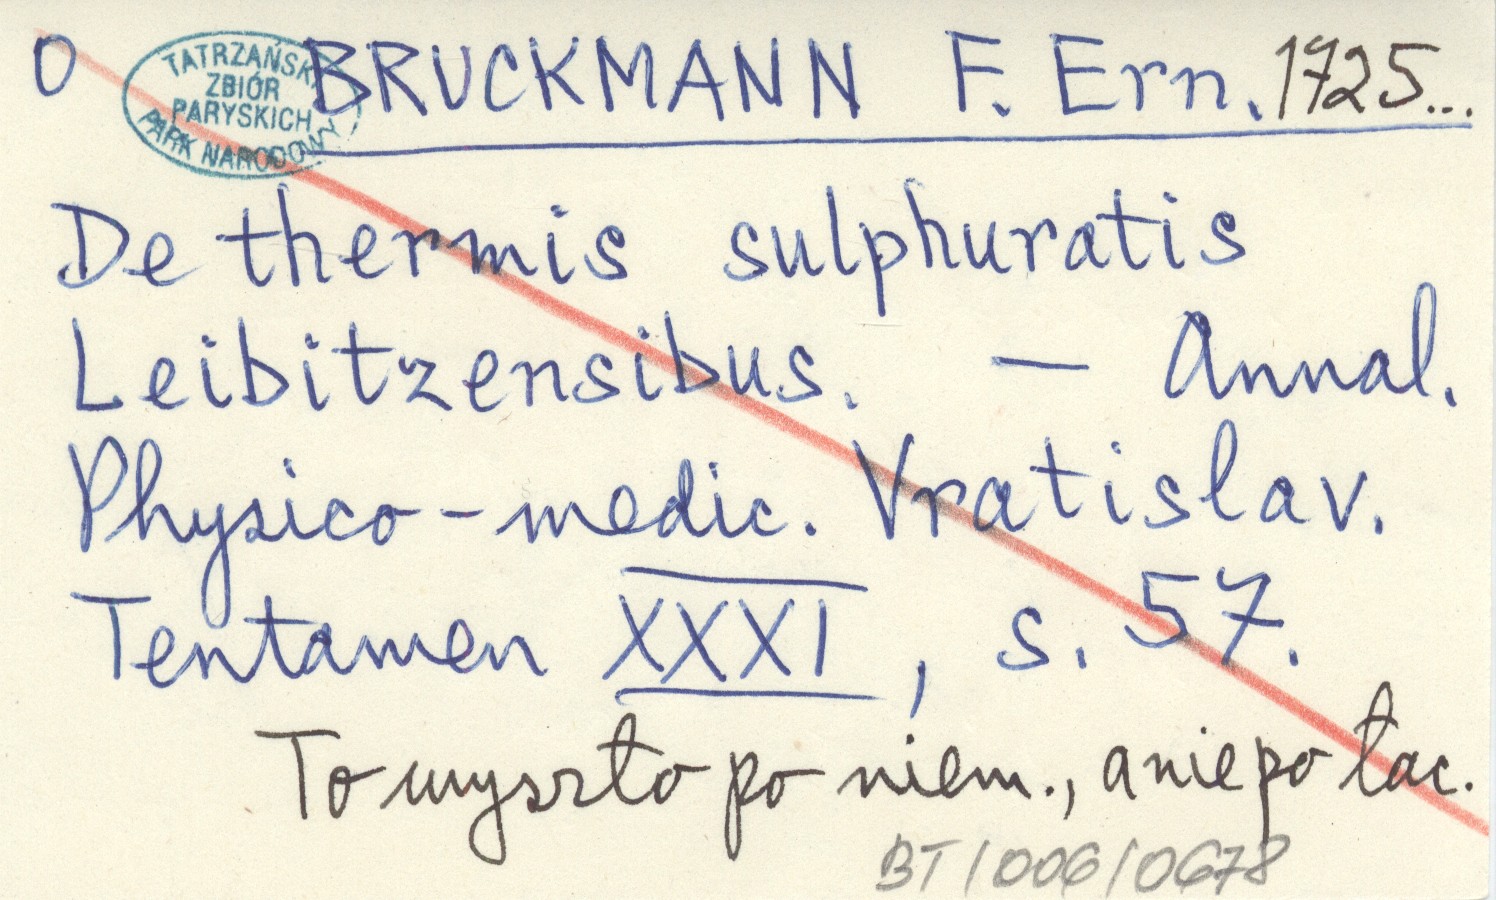 O BRUCKMANN F. Ern. 1725...
TATRZAŃSKI
ZBIÓR
PARYSKICH
PARK NARODOWY
De thermis sulphuratis
Leibitzensibus. — Annal.
Physico-medic. Vratislav.
Tentamen XXXI, s. 57.
To wyszło po niem., a nie po łac.
BT/006/0678